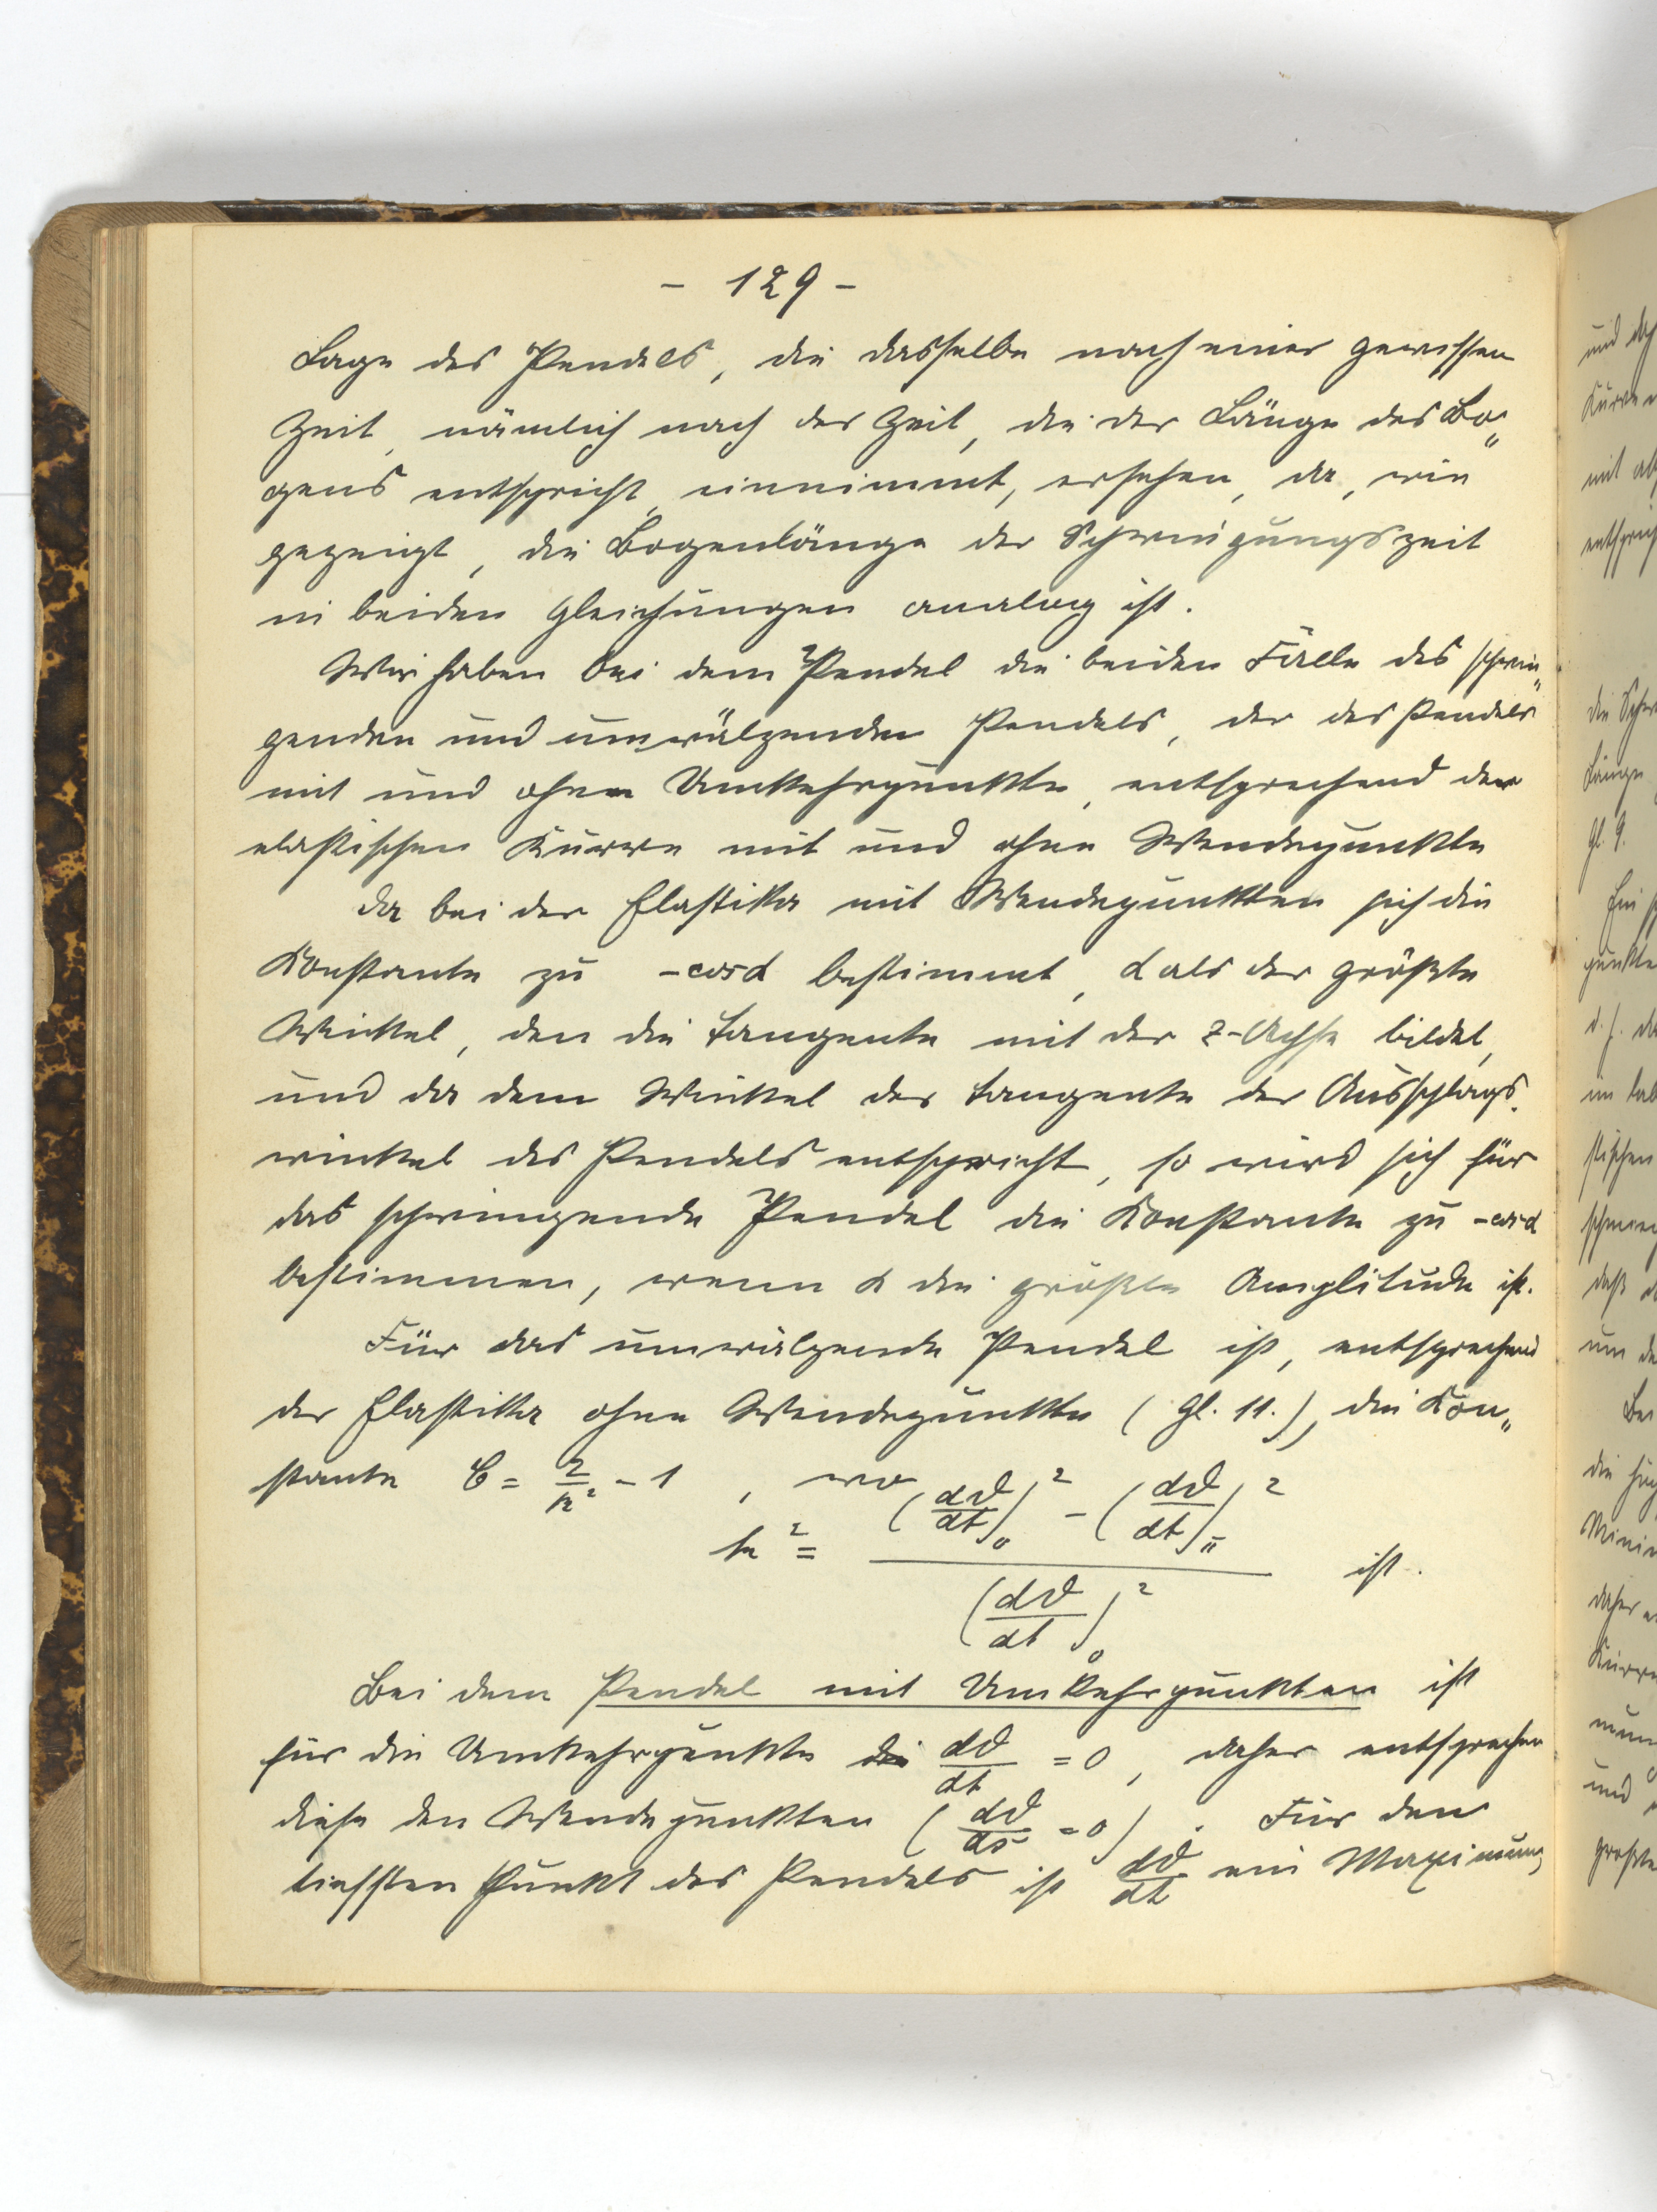 - 129 -
Lage des Pendels, die dasselbe nach einer gewissen
Zeit, nämlich nach der Zeit, die der Länge des Bo„
gens entspricht, einnimmt, ersehen, da, wie
gezeigt, die Bogenlänge der Schwingungszeit
in beiden Gleichungen analog ist.
Wir haben bei dem Pendel die beiden Fälle des schwin„
genden und umwälzenden Pendels, der des Pendels
mit und ohne Umkehrpunkte, entsprechend der
elastischen Kurve mit und ohne Wendepunkte
Da bei der Elastika mit Wendepunkten sich die
Konstante zu -cosα bestimmt, α als der größte
Winkel, den die Tangente mit der z-Achse bildet,
und da dem Winkel der Tangente der Ausschlags„
winkel des Pendels entspricht, so wird sich für
das schwingende Pendel die Konstante zu -cosα
bestimmen, wenn α die größte Amplitude ist.
Für das umwälzende Pendel ist, entsprechend
der Elastika ohne Wendepunkte (Gl. 11.), die Kon„
stante C = 2/k² - 1, wo
k² = ((dϑ/dt)₀² - (dϑ/dt)π²) / (dϑ/dt)₀² ist.
Bei dem Pendel mit Umkehrpunkten ist
für die Umkehrpunkte die dϑ/dt = 0, daher entsprechen
diese den Wendepunkten (dϑ/ds = 0). Für den
tiefsten Punkt des Pendels ist dϑ/dt ein Maximum,
und
Kurven
mit
entsprich
die
Länge
Gl. 9.
Ein
punkte
d. h.
im
stischen
daß
um
Bei
die
daher
und
größte